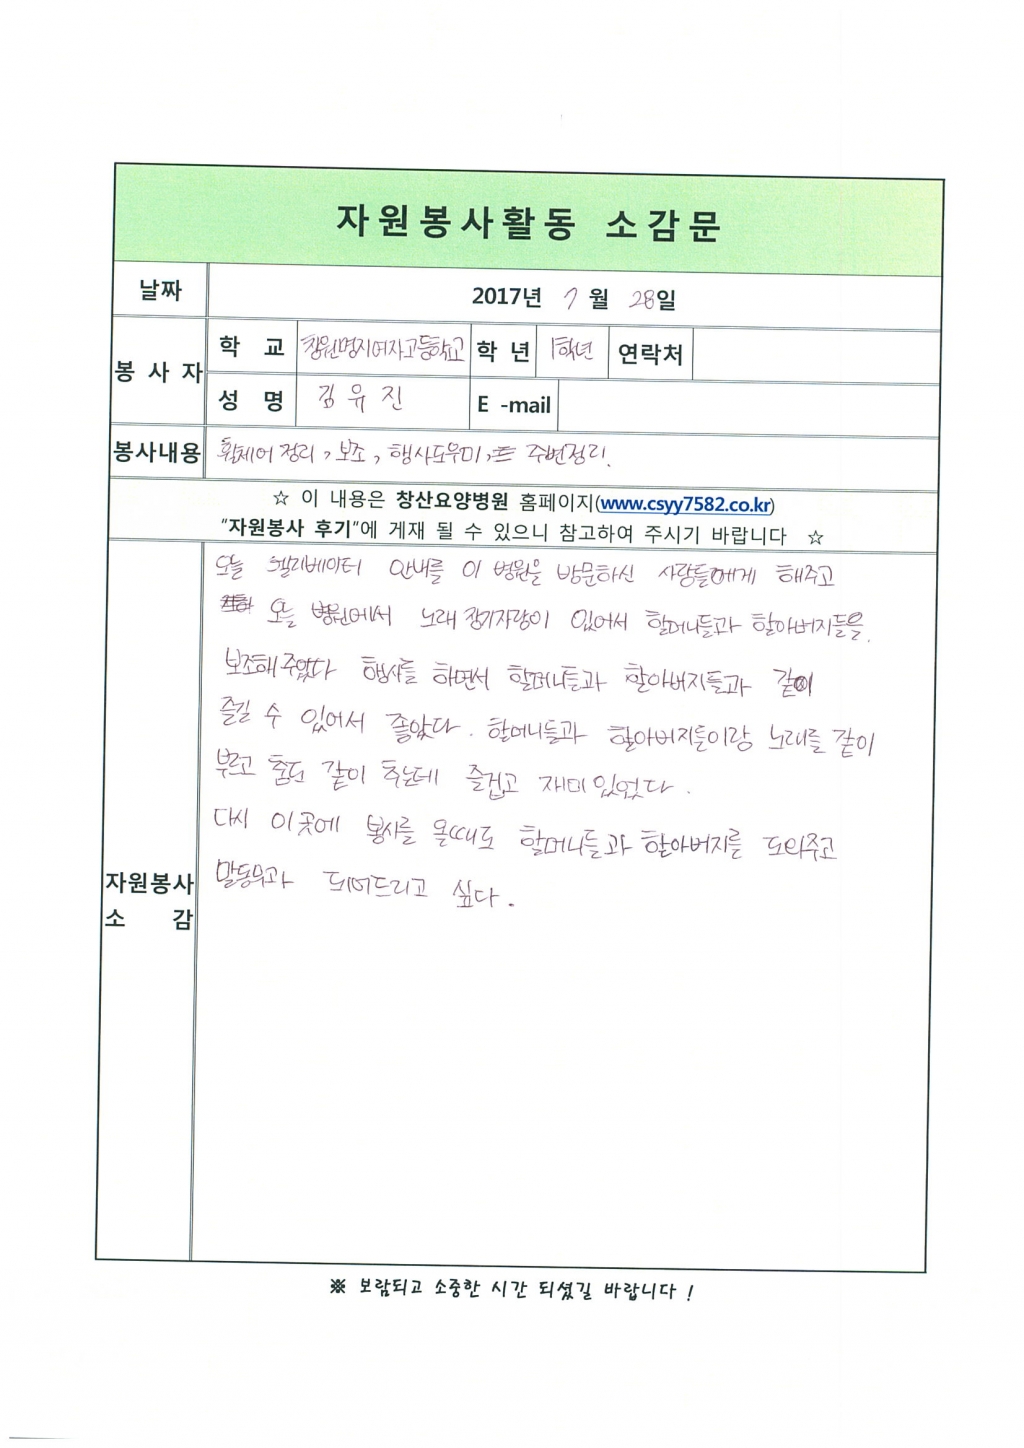 자원봉사활동 소감문
날짜 2017년 7월 28일
봉사자 학교 창원명지여자고등학교 학년 1학년 연락처
성명 김유진 E -mail
봉사내용 휠체어 정리, 보조, 행사도우미, 주변정리.
☆ 이 내용은 창산요양병원 홈페이지(www.csyy7582.co.kr)
"자원봉사 후기"에 게재 될 수 있으니 참고하여 주시기 바랍니다 ☆
자원봉사 소감
오늘 엘리베이터 안내를 이 병원을 방문하신 사람들에게 해주고
오늘 병원에서 노래 장기자랑이 있어서 할머니들과 할아버지들을
보조해 주었다 행사를 하면서 할머니들과 할아버지들과 같이
즐길 수 있어서 좋았다. 할머니들과 할아버지들이랑 노래를 같이
부르고 춤도 같이 추는데 즐겁고 재미있었다.
다시 이곳에 봉사를 올때도 할머니들과 할아버지를 도와주고
말동무가 되어드리고 싶다.
※ 보람되고 소중한 시간 되셨길 바랍니다 !